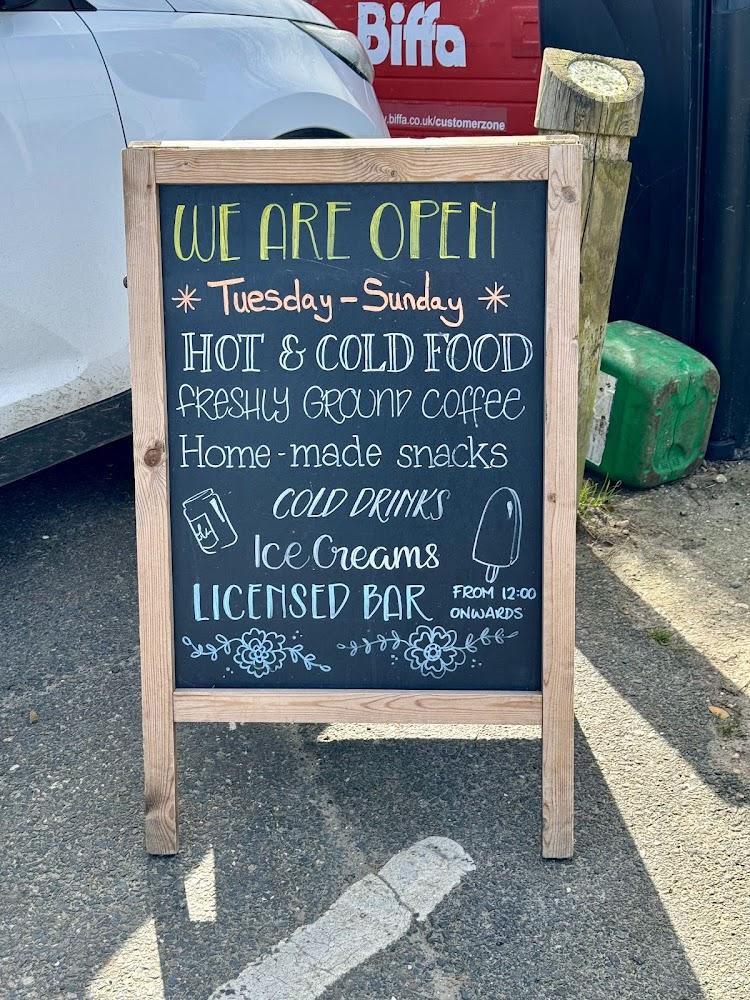 Biffa
.biffa.co.uk/customerzone
WE ARE OPEN
Tuesday - Sunday
HOT & COLD FOOD
FRESHLY GROUND COFFEE
Home-made snacks
COLD DRINKS
Ice Creams
LICENSED BAR
FROM 12:00
ONWARDS